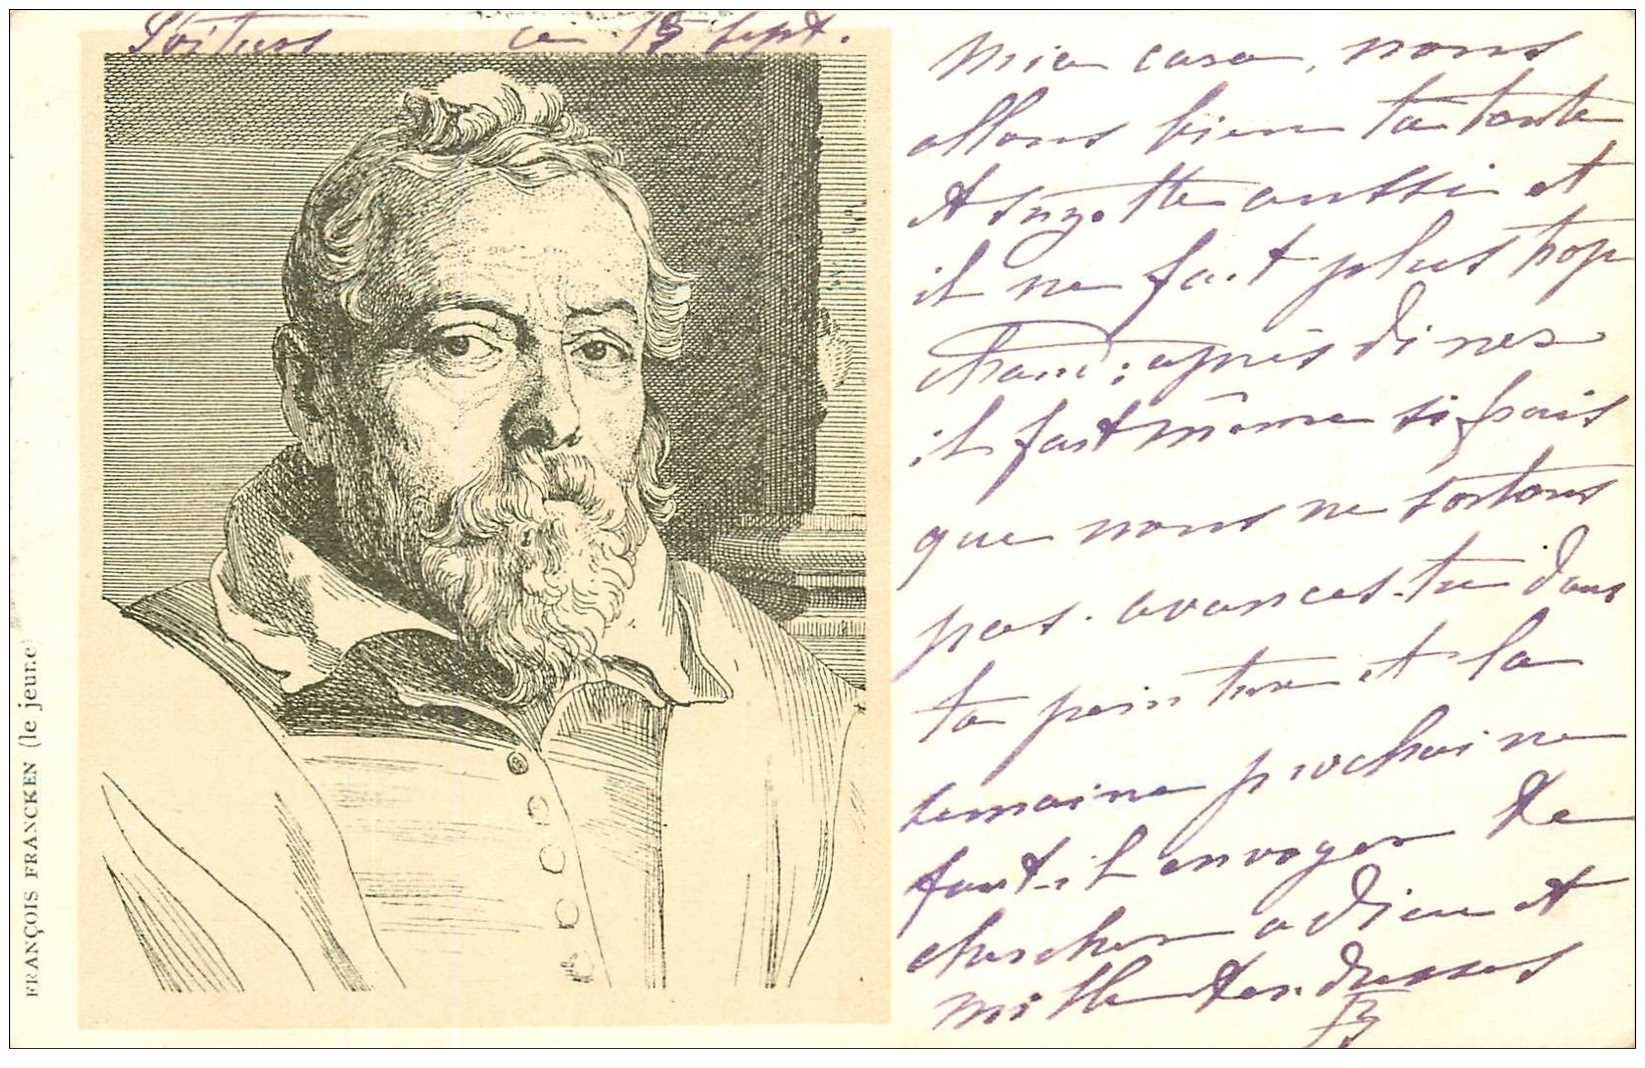 Poitiers ce 15 sept.
Mia cara, nous
allons bien ta tante
et Suzette aussi et
il ne fait plus trop
chaud; après diner
il fait même si frais
que nous ne sortons
pas. avances-tu dans
ta peinture et la
semaine prochaine
faut-il envoyer te
chercher adieu et
mille tendresses
FRANÇOIS FRANCKEN (le jeune)